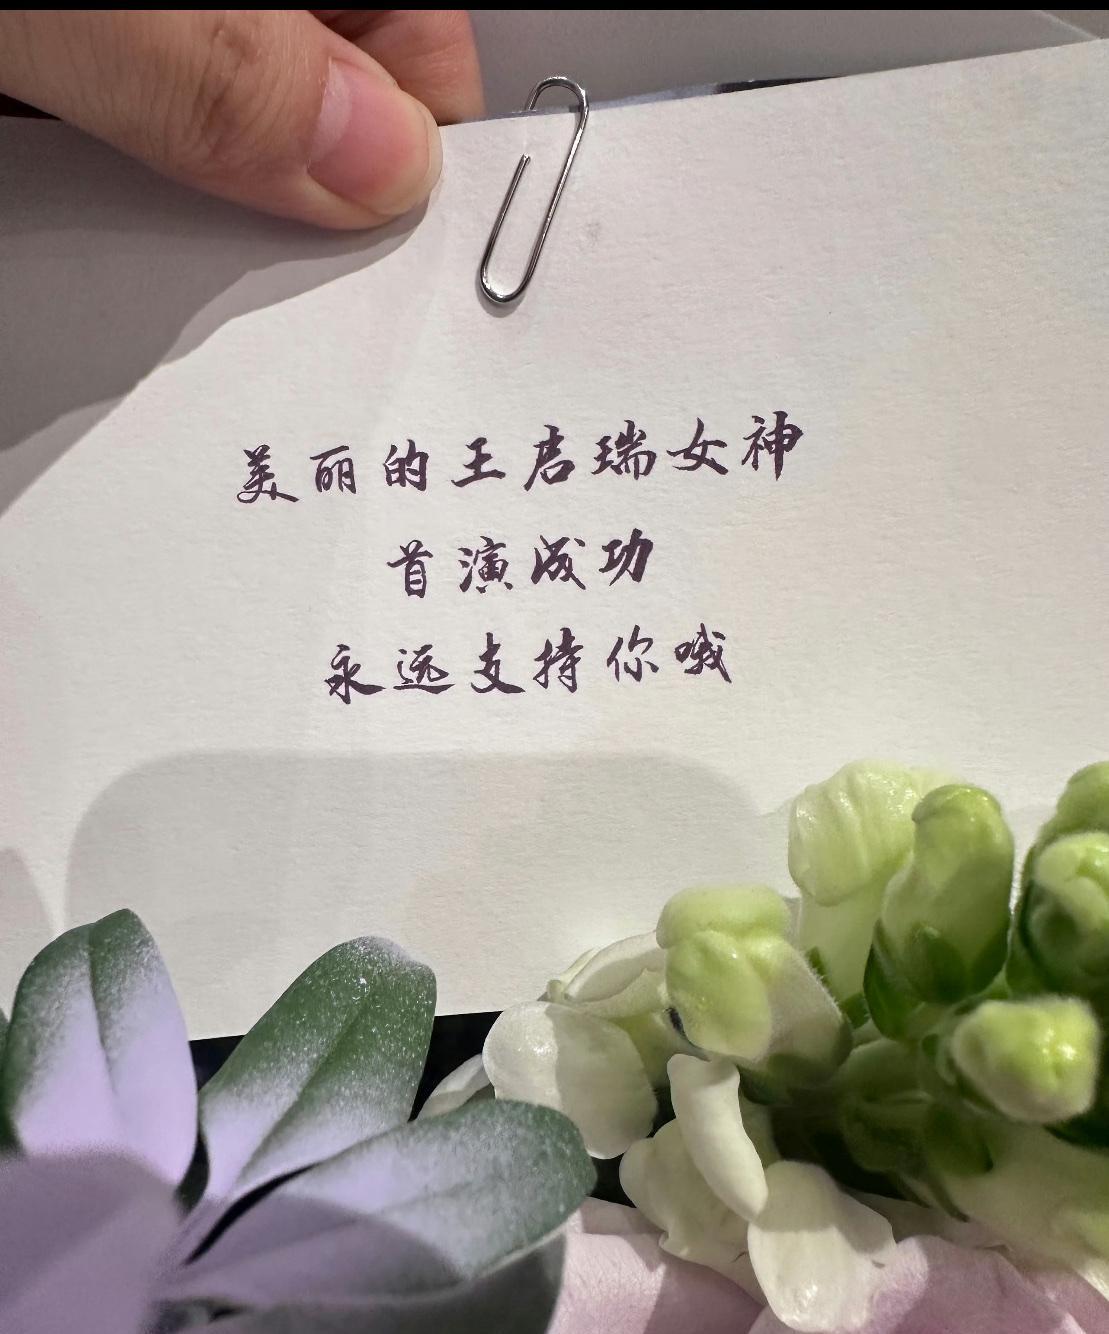 美丽的王启瑞女神
首演成功
永远支持你哦